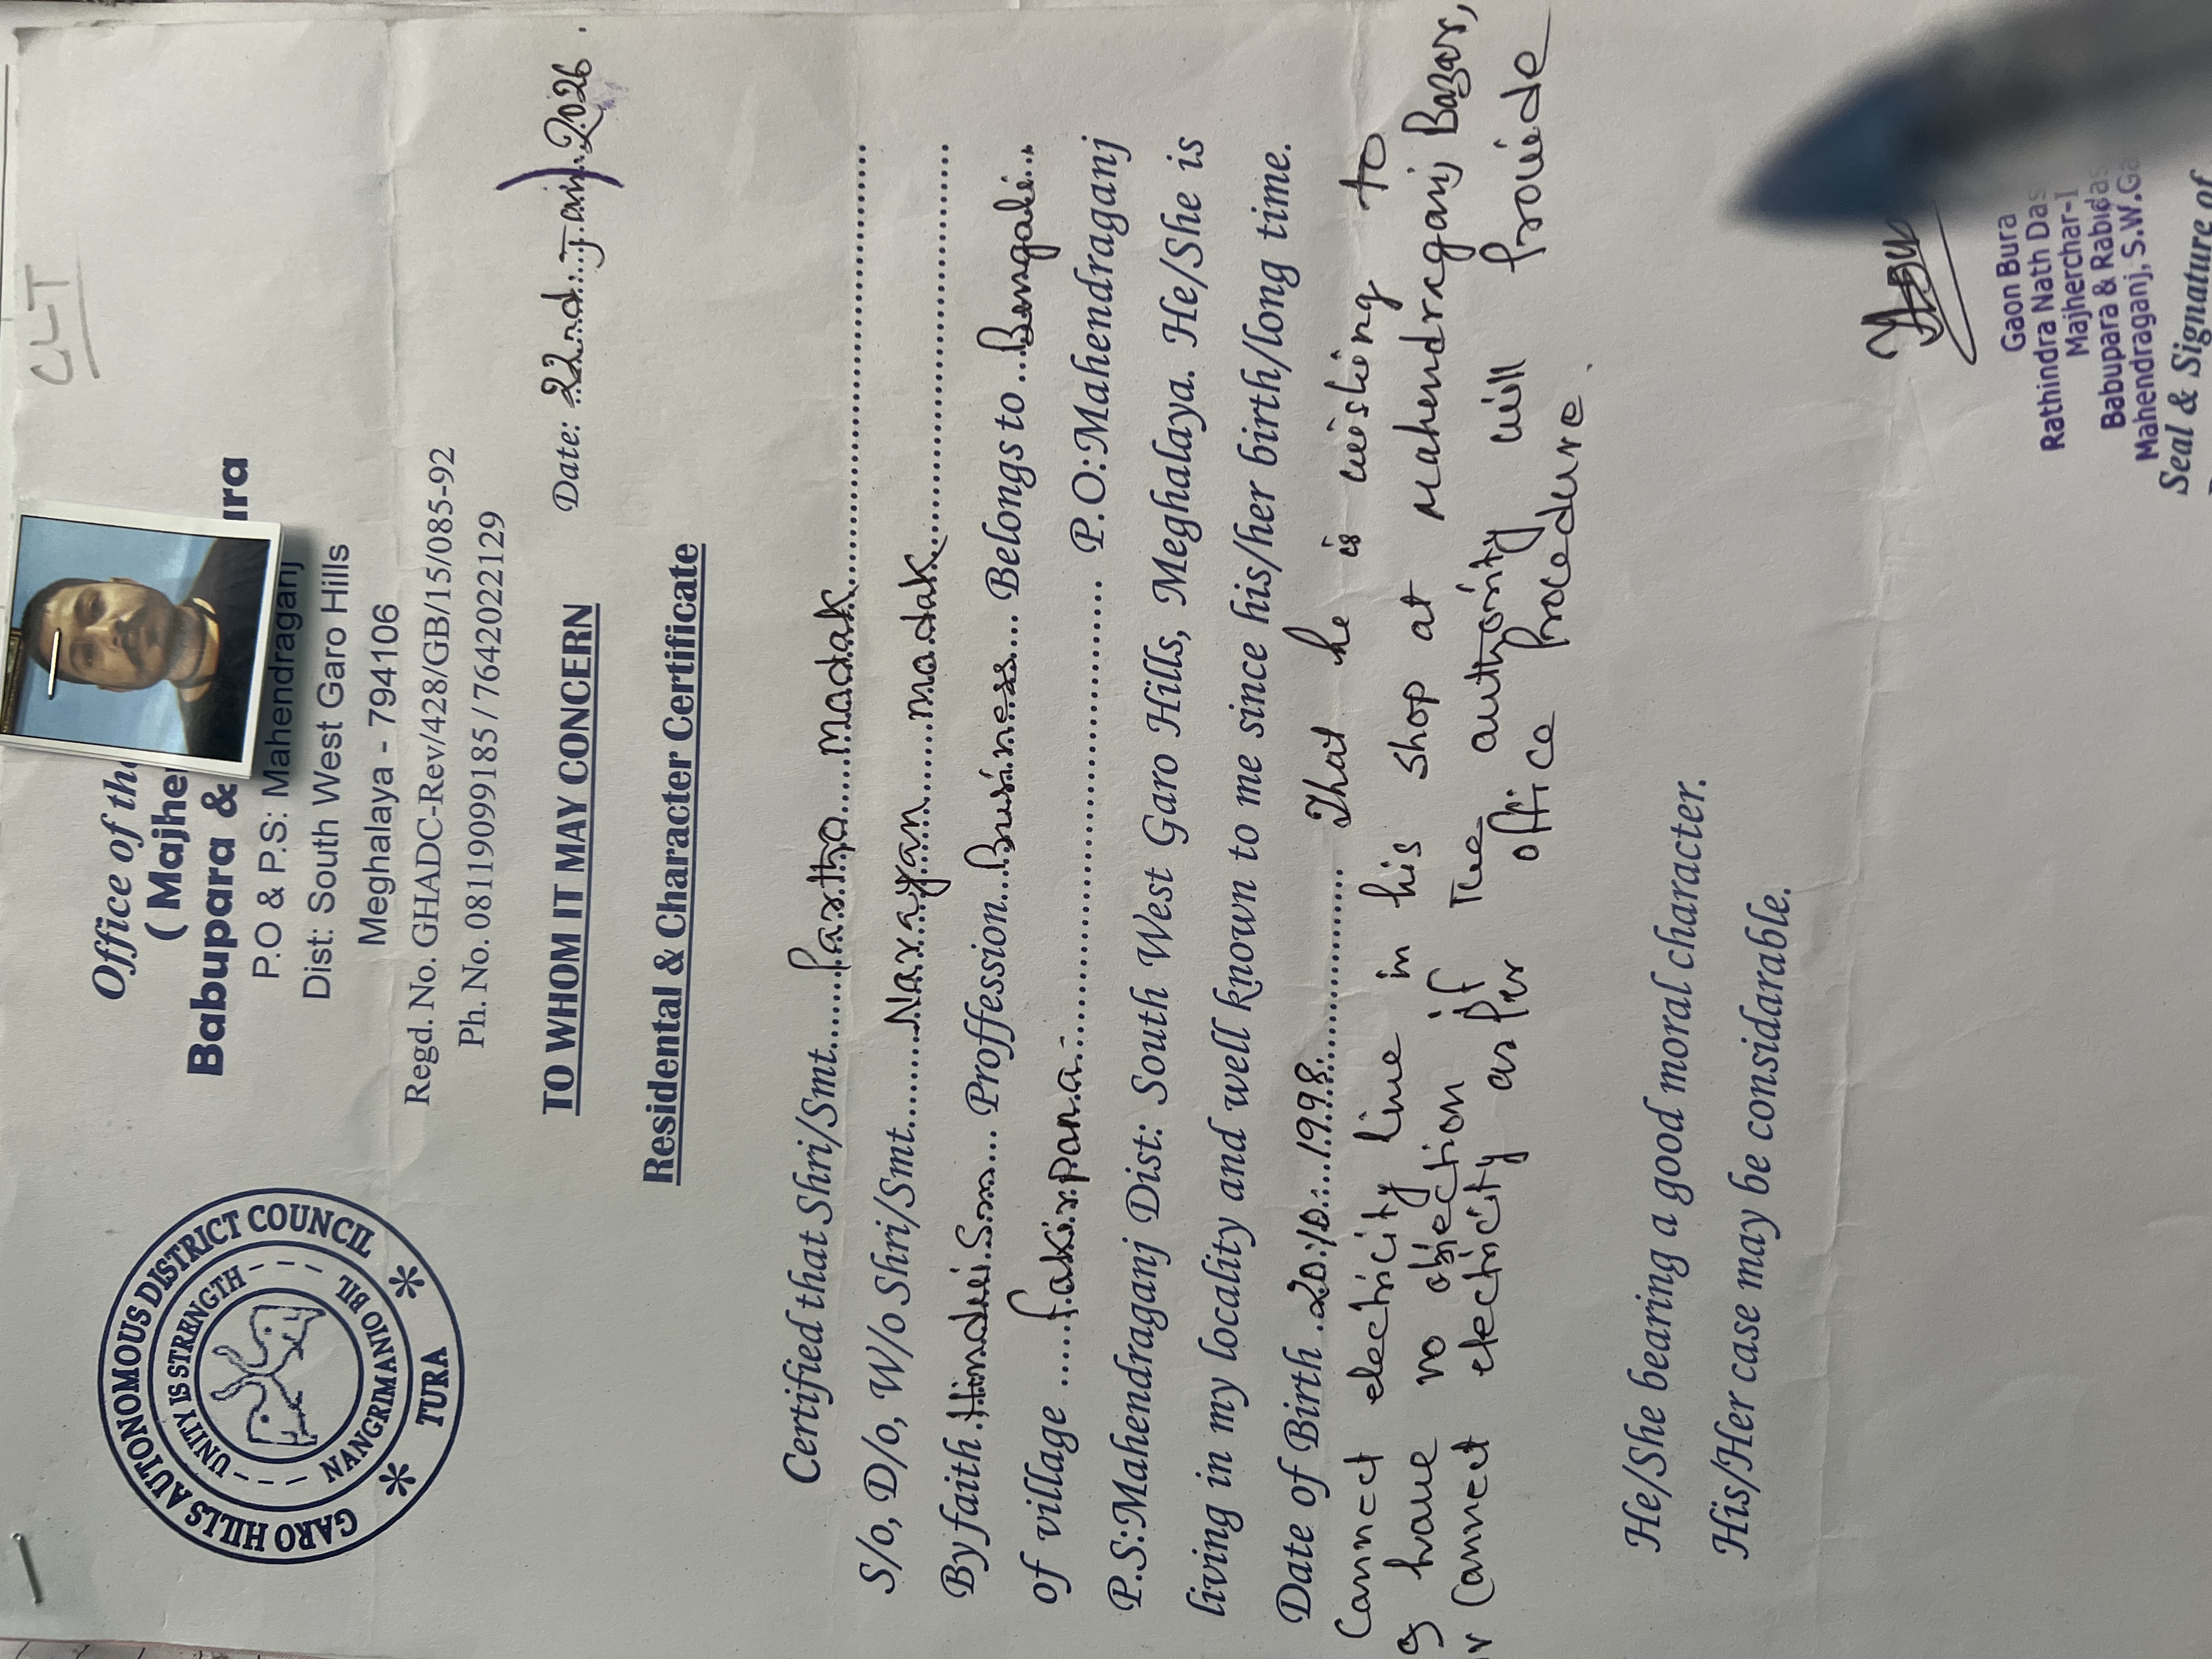 CLT
GARO HILLS AUTONOMOUS DISTRICT COUNCIL
TURA
UNITY IS STRENGTH
NANGRIMANIO BIL
Office of the
( Majhe
Babupara & ura
P.O & P.S: Mahendraganj
Dist: South West Garo Hills
Meghalaya - 794106
Regd. No. GHADC-Rev/428/GB/15/085-92
Ph. No. 08119099185 / 7642022129
TO WHOM IT MAY CONCERN
Date: 22nd Jan 2026.
Residental & Character Certificate
Certified that Shri/Smt. Partha Modak
S/o, D/o, W/o Shri/Smt. Narayan modak
By faith Hinduism Proffession Business Belongs to Bengali
of village fakirpara P.O:Mahendraganj
P.S:Mahendraganj Dist: South West Garo Hills, Meghalaya. He/She is
living in my locality and well known to me since his/her birth/long time.
Date of Birth 20.10.1998. That he is wishing to
Connect electricity line in his shop at Mahendraganj Bazar,
I have no objection if The authority will provide
connect electricity as per office Procedure.
He/She bearing a good moral character.
His/Her case may be considarable.
Gaon Bura
Rathindra Nath Das
Majherchar-I
Babupara & Rabidas
Mahendraganj, S.W.Ga
Seal & Signature of